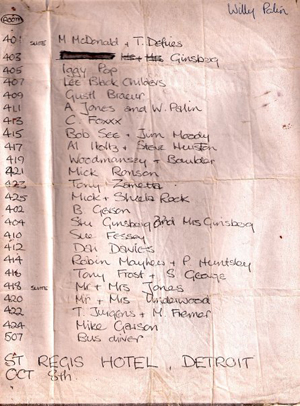 Willy Palin
ROOM
401 SUITE M McDonald + T. Defries
403 Mr + Mrs Ginsberg
405 Iggy Pop
407 Lee Black Childers
409 Gustl Breuer
411 A Jones and W. Palin
413 C. Foxxx
415 Bob See + Jim Moody
417 Al Holtz + Steve Hurston
419 Woodmansey + Boulder
421 Mick Ronson
423 Tony Zanetta
425 Mick + Sheila Rock
402 B. Gerson
404 Stu Ginsberg Mrs Ginsberg
410 Sue Fussey
412 Dai Davies
414 Robin Mayhew + P. Huntsley
416 Tony Frost + S George
418 SUITE Mr + Mrs Jones
420 Mr + Mrs Underwood
422 T. Jurgens + M. Fremer
424 Mike Garson
507 Bus driver
ST REGIS HOTEL, DETROIT
OCT 8th.